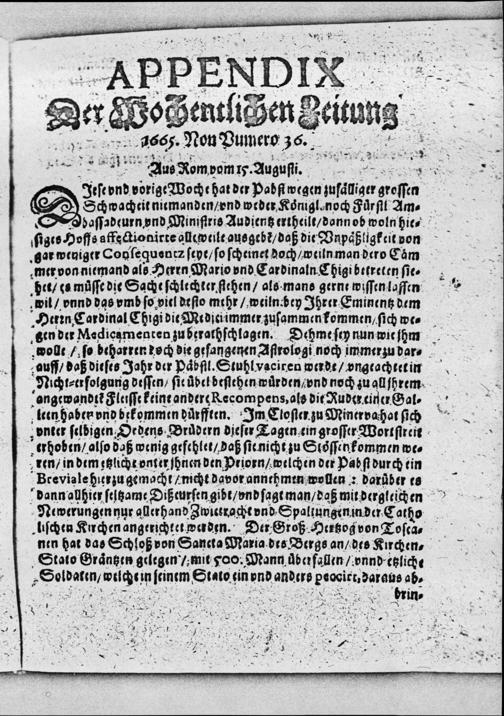 APPENDIX
Der Wochentlichen Zeitung
1665. Non Numero 36.
Aus Rom vom 15. Augusti.
DJese vnd vorige Woche hat der Pabst wegen zufälliger grossen
Schwacheit niemanden / vnd weder Königl. noch Fürstl Am-
bassadeurn vnd Ministris Audientz ertheilt / dann ob woln hie-
siges Hoffs affectionirte alleweile ausgebẽ / daß die Vnpäßligkeit von
gar weniger Consequentz seye / so scheinet doch / weiln man dero Cäm
mer von niemand als Herrn Mario vnd Cardinaln Chigi betreten sie-
het / es müsse die Sache schlechter stehen / als mans gerne wissen lassen
wil / vnnd das vmb so viel desto mehr / weiln bey Jhrer Eminentz dem
Herrn Cardinal Chigi die Medici immer zusammen kommen / sich we-
gen der Medicamenten zu berathschlagen. Dehme sey nun wie jhm
wolle / so beharren doch die gefangenen Astrologi noch immerzu dar-
auff / daß dieses Jahr der Päbstl. Stuhl vaciren werde / ongeachtet in
Nichterfolgung dessen / sie übel bestehen würden / vnd noch zu all jhrem
angewandtẽ Fleisse keine andere Recompens, als die Ruder einer Gal-
leen haben vnd bekommen dürfften. Jm Closter zu Minerva hat sich
vnter selbigen Ordens Brüdern dieser Tagen ein grosser Wortstreit
erhoben / also daß wenig gefehlet / daß sie nicht zu Stössen kommen we-
ren / in dem etzliche vnter jhnen den Priorn / welchen der Pabst durch ein
Breviale hierzu gemacht / nicht davor annehmen wollen : darüber es
dann allhier seltzame Discursen gibt / vnd sagt man / daß mit dergleichen
Newerungen nur allerhand Zwietracht vnd Spaltungen in der Catho
lischen Kirchen angerichtet werden. Der Groß Hertzog von Tosca-
nen hat das Schloß von Sancta Maria des Bergs an / des Kirchen-
Stato Gräntzen gelegen / mit 500. Mann überfallen / vnnd etzliche
Soldaten / welche in seinem Stato ein vnd anders daraus ab-
brin-